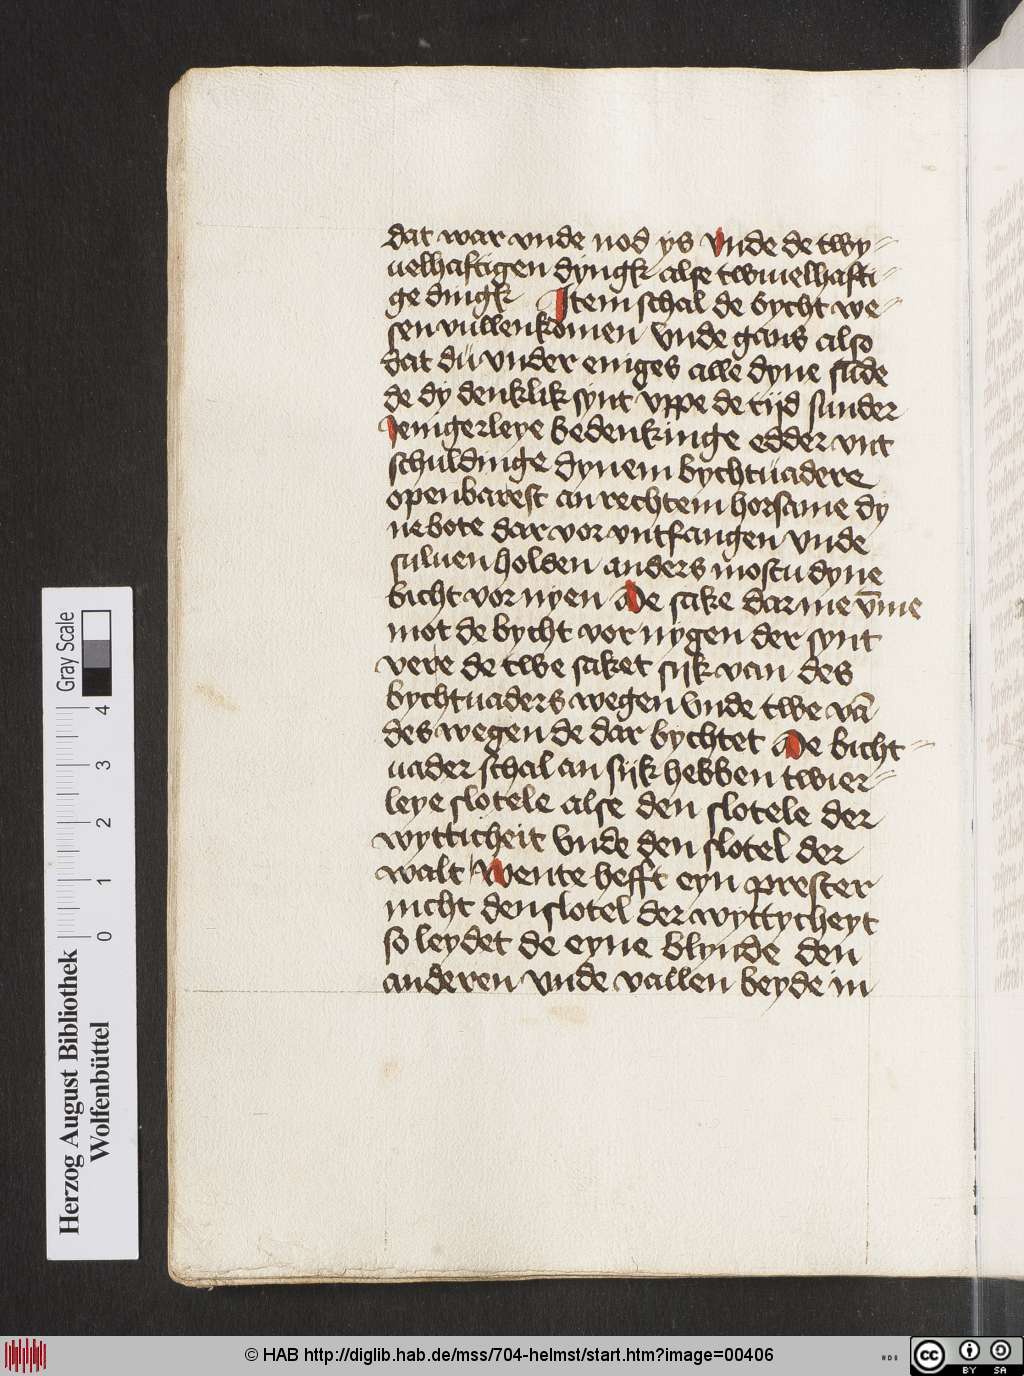 dat war vnde nod ys Vnde de twy-
uelhaftigen dyngk alse twiuelhafti-
ge dingk Item schal de bycht we-
sen vullenkomen vnde gans also
dat dü vnder eniges alle dyne sūde
de dy denklik synt vppe de tijd sunder
Ienigerleye bedenkinge edder vnt
schuldinge dynem bychtüadere
openbarest an rechtem horsame dy
ne bote dar vor vntfangen vnde
suluen holden anders mostu dyne
bicht vor nyen De sake dar me v̄me
mot de bycht vor nygen der synt
vere de twe saket sijk van des
bychtuaders wegen vnde twe vā
des wegen de dar bychtet De bicht-
uader schal an sijk hebben twier-
leye slotele alse den slotele der
wytticheit vnde den slotel der
walt Wente hefft eyn prester
nicht den slotel der wyttycheyt
so leydet de eyne blynde den
anderen vnde vallen beyde in
Herzog August Bibliothek
Wolfenbüttel
0 1 2 3 4
Gray Scale
© HAB http://diglib.hab.de/mss/704-helmst/start.htm?image=00406
cc BY SA